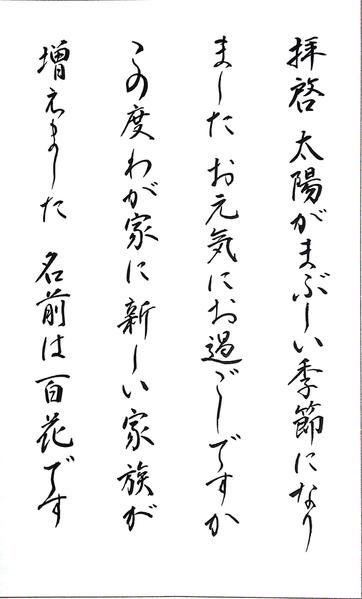 拝啓 太陽がまぶしい季節になり
ました お元気にお過ごしですか
この度わが家に新しい家族が
増えました 名前は百花です